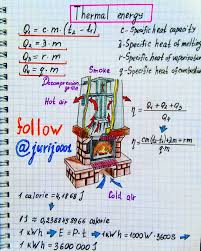 Thermal energy
Q₁ = c·m·(t₂ - t₁)
c - Specific heat capacity
Q₂ = λ·m
λ - Specific heat of melting
Q₃ = r·m
r - Specific heat of vaporization
Q₄ = q·m
q - Specific heat of combustion
Smoke
Decompression
grille
Hot air
η = Q₁ + Q₂ + Q₃ / Q₄
follow
@jurijooos
η = cm(t₂-t₁)+λm+rm / q·m
Cold air
1 calorie = 4,1868 J
1 J = 0,238845896 calorie
1 kWh → E = P·t → 1 kWh = 1000W·3600s
1 kWh = 3600000 J